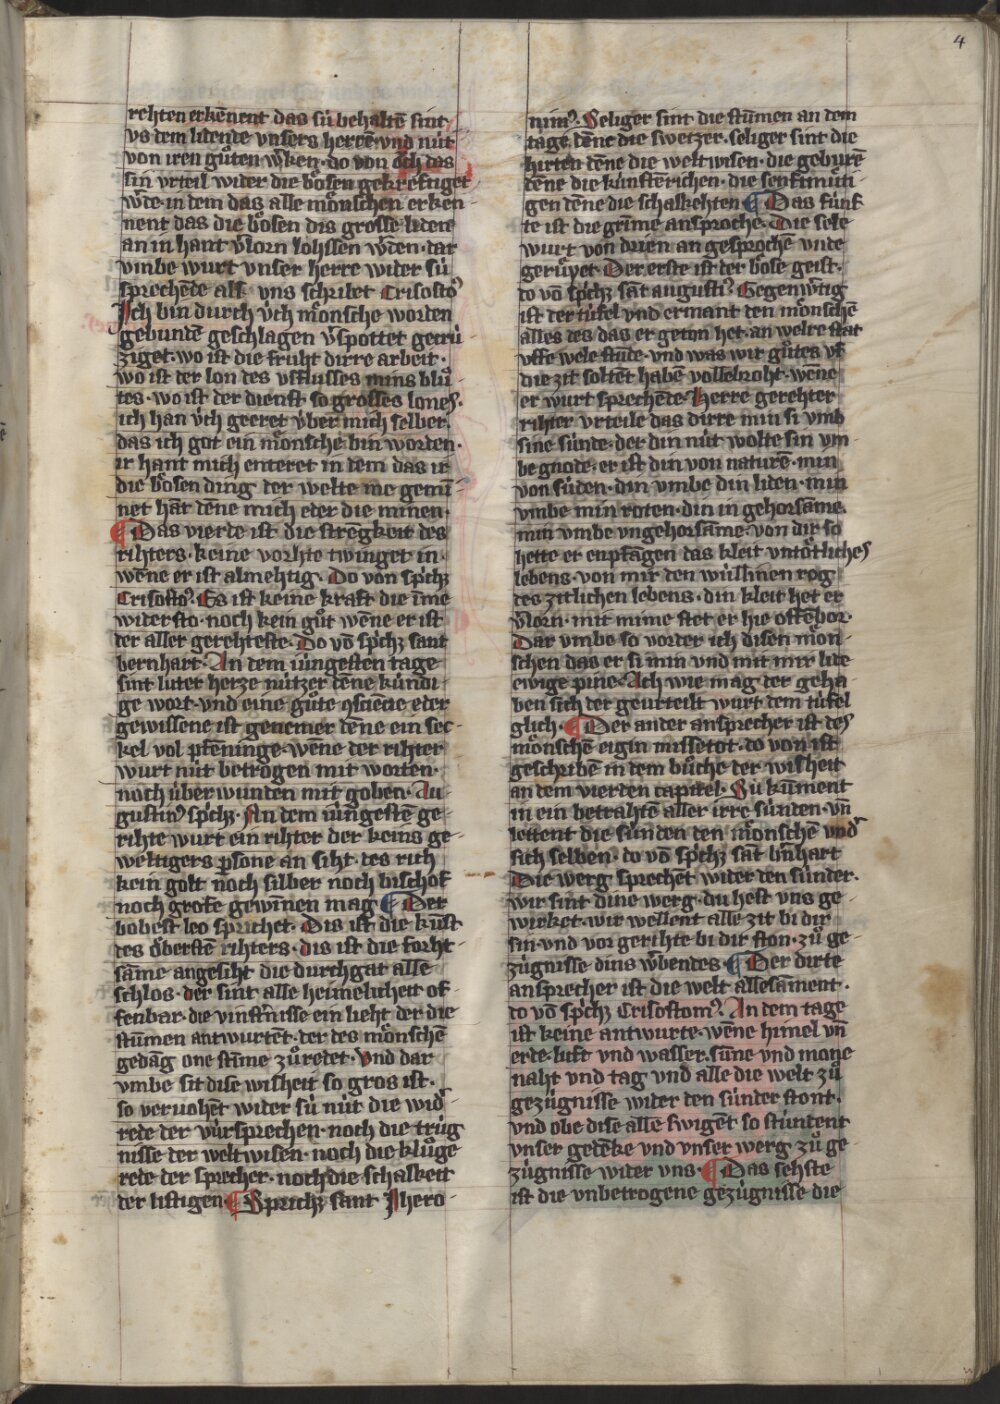 4
rehten erkēnent das sú behaltē sint
vs dem lidende vnsers herrē vnd nút
von iren guͦten wͤken · do von oͮch das
sin vrteil wider die boͤsen gekreftiget
wͤde · in dem das alle moͤnschen erken-
nent das die boͤsen dis grosse lidete
an in hant vͤlorn lohssen wͤden · dar
vmbe wurt vnser herre wider sú
sprechēde als vns schribet Crisostoꝰ
Ich bin durch v́ch moͤnsche worden
gebundē geschlagen vͤspottet gecrú-
ziget · wo ist die fruht dirre arbeit ·
wo ist der lon des vsflusses mins bluͦ-
tes · wo ist der dienst so grosses lones ·
ich han v́ch geeret v́ber mich selber ·
das ich got ein moͤnsche bin worden ·
ir hant mich enteret in dem das ir
die boͤsen ding der welte me gemī-
net hāt dēne mich eder die minen ·
¶ Das vierde ist die strēgkeit des
rihters · keine vorhte twinget in ·
wēne er ist almehtig · Do von spͥchꝫ
Crisostoꝰ · Es ist keine kraft die īme
widersto · noch kein guͦt wēne er ist
der aller gerehteste · Do vō spͥchꝫ sant
bernhart · An dem iúngesten tage
sint luter herze nútzer dēne kúndi-
ge wort · vnd eine guͦte ꝯsciēcie eder
gewissene ist genemer dēne ein sec-
kel vol pfēninge · wēne der rihter
wurt nút betrogen mit worten ·
noch úber wunden mit goben · Au-
gustinꝰ spͥchꝫ · An dem iúngestē ge-
rihte wurt ein rihter der keins ge-
weltigers ꝑsone an siht · des rich
kein golt noch silber noch bischof
noch grofe gewīnen mag ¶ Der
bobest leo sprichet · Dis ist die kúst
des oͤberstē rihters · dis ist die forht-
sāme angesiht die durchgat alle
schlos · der sint alle heimelicheit of-
fenbar · die vinstͤnisse ein lieht der die
stūmen antwurtēt · der des moͤnschē
gedāg one stīme zuͦredet · Vnd dar
vmbe sit dise wisheit so gros ist ·
so veruohēt wider sú nút die wid-
rede der vúrsprechen · noch die trúg
nisse der welt wisen · noch die kluͦge
rede der sprecher · noch die schalkeit
der listigen ¶ Sprichꝫ sant Jhero-
nimꝰ · Seliger sint die stūmen an dem
tage dēne die swetzer · seliger sint die
hirten dēne die welt wisen · die geburē
dēne die kúnstērichen · die senftmuͤti-
gen dēne die schalkehten ¶ Das fúnf
te ist die grīme ansproche · Die sele
wurt von drien an gesprochē vnde
geruͤyet · Der erste ist der boͤse geist ·
do vō spͥchꝫ sāt augustiꝰ · Gegenwͤtig
ist der túfel vnd ermant den moͤnschē
alles des das er geton het · an welre stat
vffe wele stūde · vnd was wir guͦtes vf
die zit soltēt habē vollebroht · wēne
er wurt sprechēde · Herre gerehter
rihter vrteile das dirre min si vmb
sine súnde · der din nút wolte sin vm-
be gnode · er ist din von naturē · min
von súden · din vmbe din liden · min
vmbe min roten · din in gehorsāme ·
min vmbe vngehorsāme · von dir so
hette er enpfāgen das kleit vntoͤtliches
lebens · von mir den wúllinen rog
des zitlichen lebens · din kleit het er
vͤlorn · mit mime stet er hie offēbor ·
Dar vmbe so vorder ich disen moͤn-
schen das er si min vnd mit mir lide
ewige pine · Ach wie mag der geha-
ben sich der geurteilt wurt dem túfel
glich · ¶ Der ander ansprecher ist des
moͤnschē eigin missetot · do von ist
geschribē in dem buͦche der wisheit
an dem vierden capitel · Sú kūment
in ein betrahtē aller irre súnden · vn̄
leitent die súnden den moͤnschē vnd
sich selben · do vō spͥchꝫ sāt bͤnhart
Die werg sprechēt wider den súnder ·
wir sint dine werg · du hest vns ge-
wirket · wir wellent alle zit bi dir
sin · vnd vor gerihte bi dir ston · zuͦ ge-
zúgnisse dins wͤbendes ¶ Der dirte
ansprecher ist die welt allesāment ·
do vō spͥchꝫ Crisostomꝰ · An dem tage
ist keine antwurte · wēne himel vn̄
erde · luft vnd wasser · sūne vnd mone
naht vnd tag vnd alle die welt zuͦ
gezúgnisse wider den súnder stont ·
vnd obe dise alle swigēt so stúndent
vnser gedēke vnd vnser werg zuͦ ge-
zúgnisse wider vns · ¶ Das sehste
ist die vnbetrogene gezúgnisse die